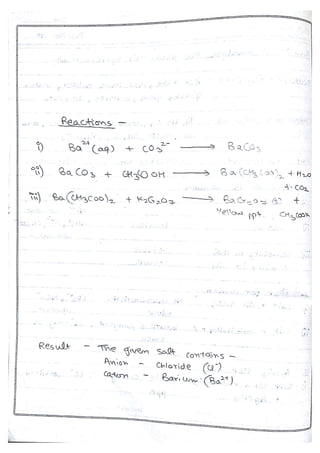 Reactions -
i) Ba²⁺ (aq) + CO₃²⁻ ⟶ BaCO₃
ii) BaCO₃ + CH₃COOH ⟶ Ba(CH₃COO)₂ + H₂O
+ CO₂
iii) Ba(CH₃COO)₂ + K₂CrO₄ ⟶ +
Yellow ppt. CH₃COOK
Result - The given salt contains -
Anion - Chloride (Cl⁻)
Cation - Barium (Ba²⁺)